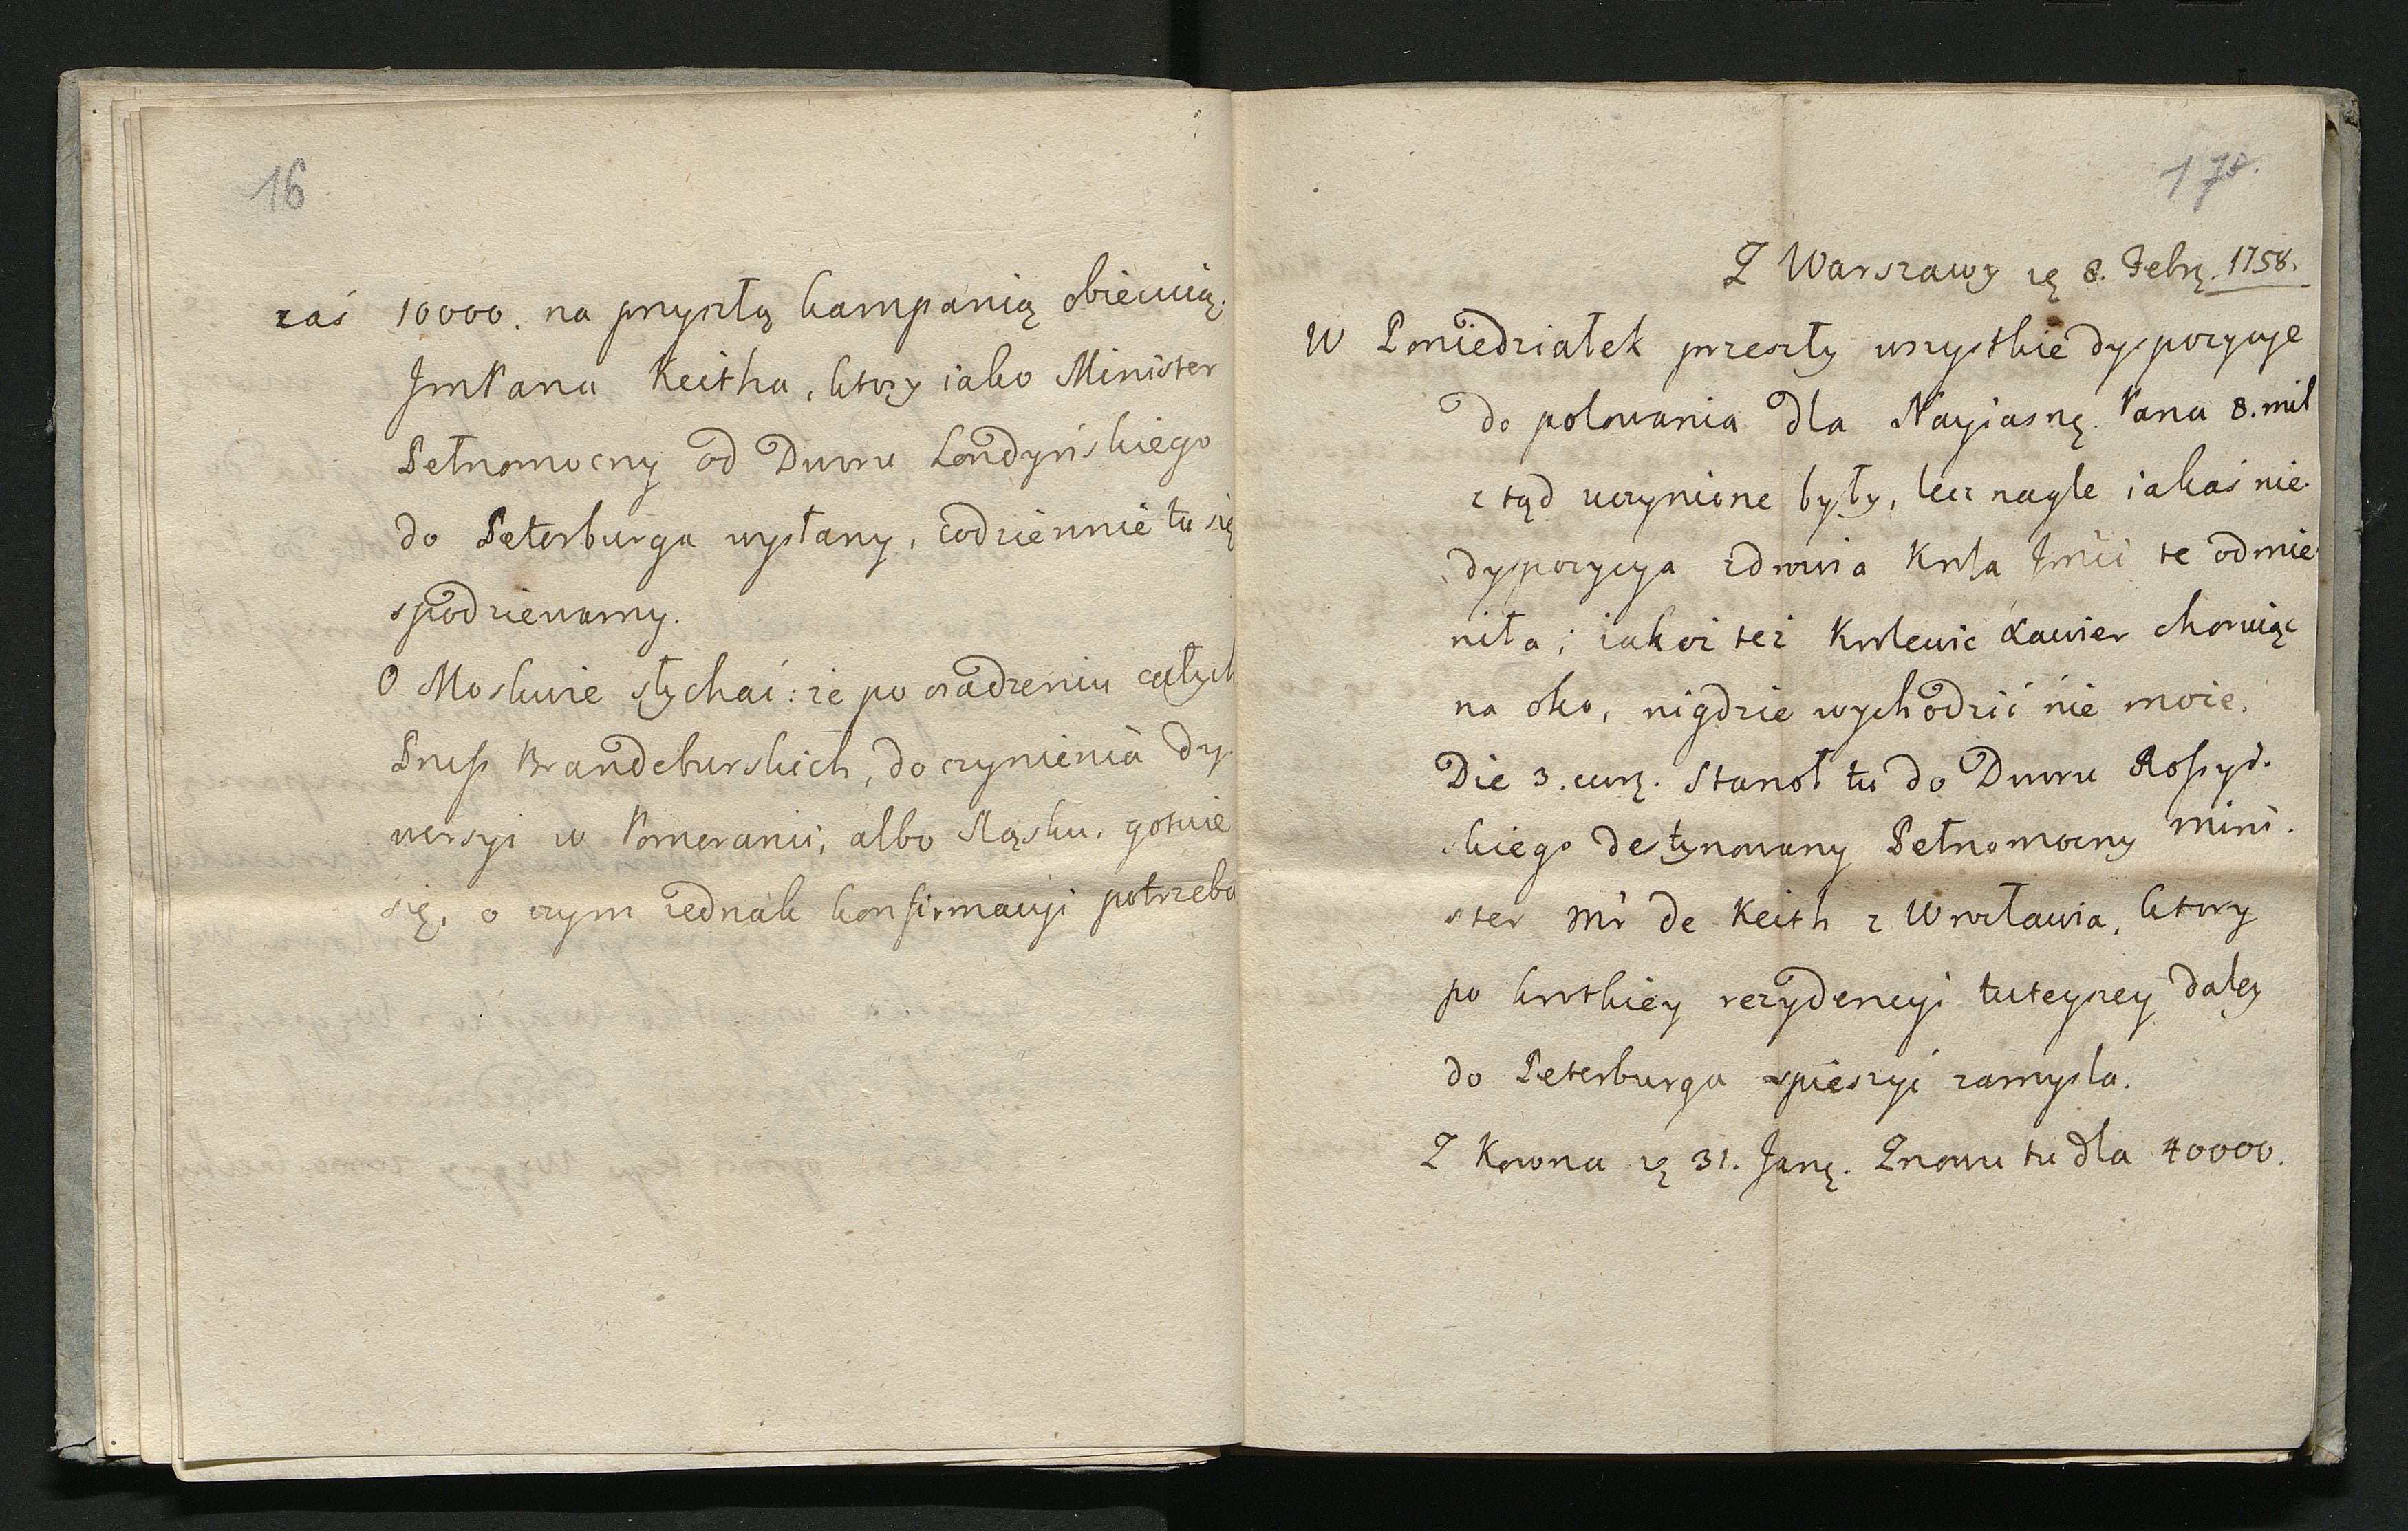 16
zaś 10000. na przyszłą kampanią obiecuią.
JmPana Keitha, ktory iako Minister
Pełnomocny od Dworu Londyńskiego
do Peterburga wysłany, codziennie tu się
spodziewamy.
O Moskwie słychać: że po osadzeniu całych
Pruss Brandeburskich, do czynienia dy-
wersyi w Pomeranii, albo Sląsku, gotuie
się, o czym iednak konfirmacyi potrzeba
17
Z Warszawy 8. Febr. 1758.
W Poniedziałek przeszły wszystkie dyspozycye
do polowania dla Nayiasn. Pana 8. mil
z tąd uczynione były, lecz nagle iakaś nie-
dyspozycya zdrowia Krola Jmći te odmie-
niła; iakoż też Krolewic Xawier choruiąc
na oko, nigdzie wychodzić nie może.
Die 3. curr. Stanoł tu do Dworu Rossyi-
skiego destynowany Pełnomocny Mini-
ster Mr de Keith z Wrocławia, ktory
po krotkiey rezydencyi tuteyszey daley
do Peterburga spieszyć zamysla.
Z Kowna 31. Jan. Znowu tu dla 40000.